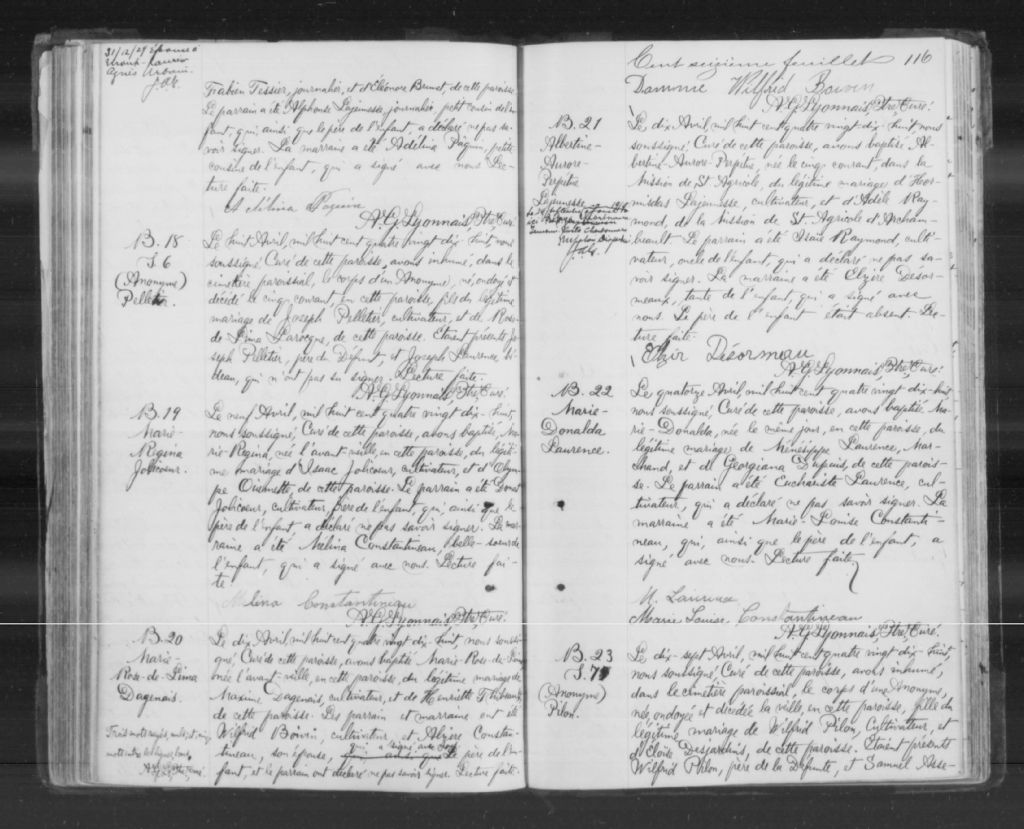 31/12/29
Agnès Urbain
J.A.
Fabien Tessier, journalier, et d'Eléonore Brunet, de cette paroisse.
Le parrain a été Alphonse Lajeunesse, journalier, petit cousin de l'en-
fant, qui, ainsi que le père de l'enfant, a déclaré ne pas sa-
voir signer. La marraine a été Adélina Paquin, petite
cousine de l'enfant, qui a signé avec nous. Lec-
ture faite.
Adélina Paquin
A. G. Lyonnais, Ptre, Curé.
B. 18
S. 6
(Anonyme)
Pelletier.
Le huit Avril, mil huit cent quatre vingt dix-huit, nous
soussigné, Curé de cette paroisse, avons inhumé, dans le
cimetière paroissial, le corps d'un Anonyme, né, ondoyé et
décédé le cinq courant, en cette paroisse, fils du légitime
mariage de Joseph Pelletier, cultivateur, et de Rose-
de-Lima Larocque, de cette paroisse. Etaient présents Jo-
seph Pelletier, père du Défunt et Joseph Laurence
qui n'ont pas su signer. Lecture faite.
A. G. Lyonnais, Ptre, Curé.
B. 19
Marie-
Régina
Jolicoeur.
Le neuf Avril, mil huit cent quatre vingt dix-huit,
nous soussigné, Curé de cette paroisse, avons baptisé, Ma-
rie-Régina, née l'avant-veille, en cette paroisse, du légiti-
me mariage d'Isaac Jolicoeur, cultivateur, et d'Olym-
pe Ouimette, de cette paroisse. Le parrain a été Donat
Jolicoeur, cultivateur, frère de l'enfant, qui, ainsi que le
père de l'enfant, a déclaré ne pas savoir signer. La mar-
raine a été Mélina Constantineau, belle-soeur de
l'enfant, qui a signé avec nous. Lecture fai-
te.
Mélina Constantineau
A. G. Lyonnais, Ptre, Curé.
B. 20
Marie-
Rose-de-Lima
Dagenais.
Le dix Avril, mil huit cent quatre vingt dix-huit, nous soussi-
gné, Curé de cette paroisse, avons baptisé Marie-Rose-de-Lima
née l'avant-veille, en cette paroisse, du légitime mariage de
Maxime Dagenais, cultivateur, et de Henriette
de cette paroisse. Les parrain et marraine ont été
Wilfrid Boivin, cultivateur, et Alzire Constan-
tineau, son épouse, qui a signé avec nous. Le père de l'en-
fant, et le parrain ont déclaré ne pas savoir signer. Lecture faite.
Trois mots rayés nuls et cinq
mots
A. G. L. Ptre, Curé.
Cent seizième feuillet 116
Damme Wilfrid Boivin
A. G. Lyonnais, Ptre, Curé.
B. 21
Albertine-
Aurore-
Perpétue
Lajeunesse
Le dix Avril, mil huit cent quatre vingt-dix-huit, nous
soussigné, Curé de cette paroisse, avons baptisé Al-
bertine-Aurore-Perpétue, née le cinq courant, dans la
Mission de St Agricole, du légitime mariage d'Hor-
misdas Lajeunesse, cultivateur, et d'Adèle Ray-
mond, de la Mission de St Agricole d'Archam-
beault. Le parrain a été Isaïe Raymond, culti-
vateur, oncle de l'enfant, qui a déclaré ne pas sa-
voir signer. La marraine a été Elzire Désor-
meaux, tante de l'enfant, qui a signé avec
nous. Le père de l'enfant étant absent. Lec-
ture faite.
Elzir Désormau
A. G. Lyonnais, Ptre, Curé.
B. 22
Marie-
Donalda
Laurence.
Le quatorze Avril, mil huit cent quatre vingt dix-huit,
nous soussigné, Curé de cette paroisse, avons baptisé Ma-
rie-Donalda, née le même jour, en cette paroisse, du
légitime mariage de Ménésippe Laurence, Mar-
chand, et de Georgiana Dupuis, de cette parois-
se. Le parrain a été Euchariste Laurence, cul-
tivateur, qui a déclaré ne pas savoir signer. La
marraine a été Marie-Louise Constanti-
neau, qui, ainsi que le père de l'enfant, a
signé avec nous. Lecture faite.
M. Laurence
Marie Louise Constantineau
A. G. Lyonnais, Ptre, Curé.
B. 23
S. 7
(Anonyme)
Pilon.
Le dix-sept Avril, mil huit cent quatre vingt dix-huit,
nous soussigné, Curé de cette paroisse, avons inhumé,
dans le cimetière paroissial, le corps d'une Anonyme,
née, ondoyée et décédée la veille, en cette paroisse, fille du
légitime mariage de Wilfrid Pilon, Cultivateur, et
d'Eloïse Desjardins, de cette paroisse. Etaient présents
Wilfrid Pilon, père de la Défunte, et Samuel Asse-